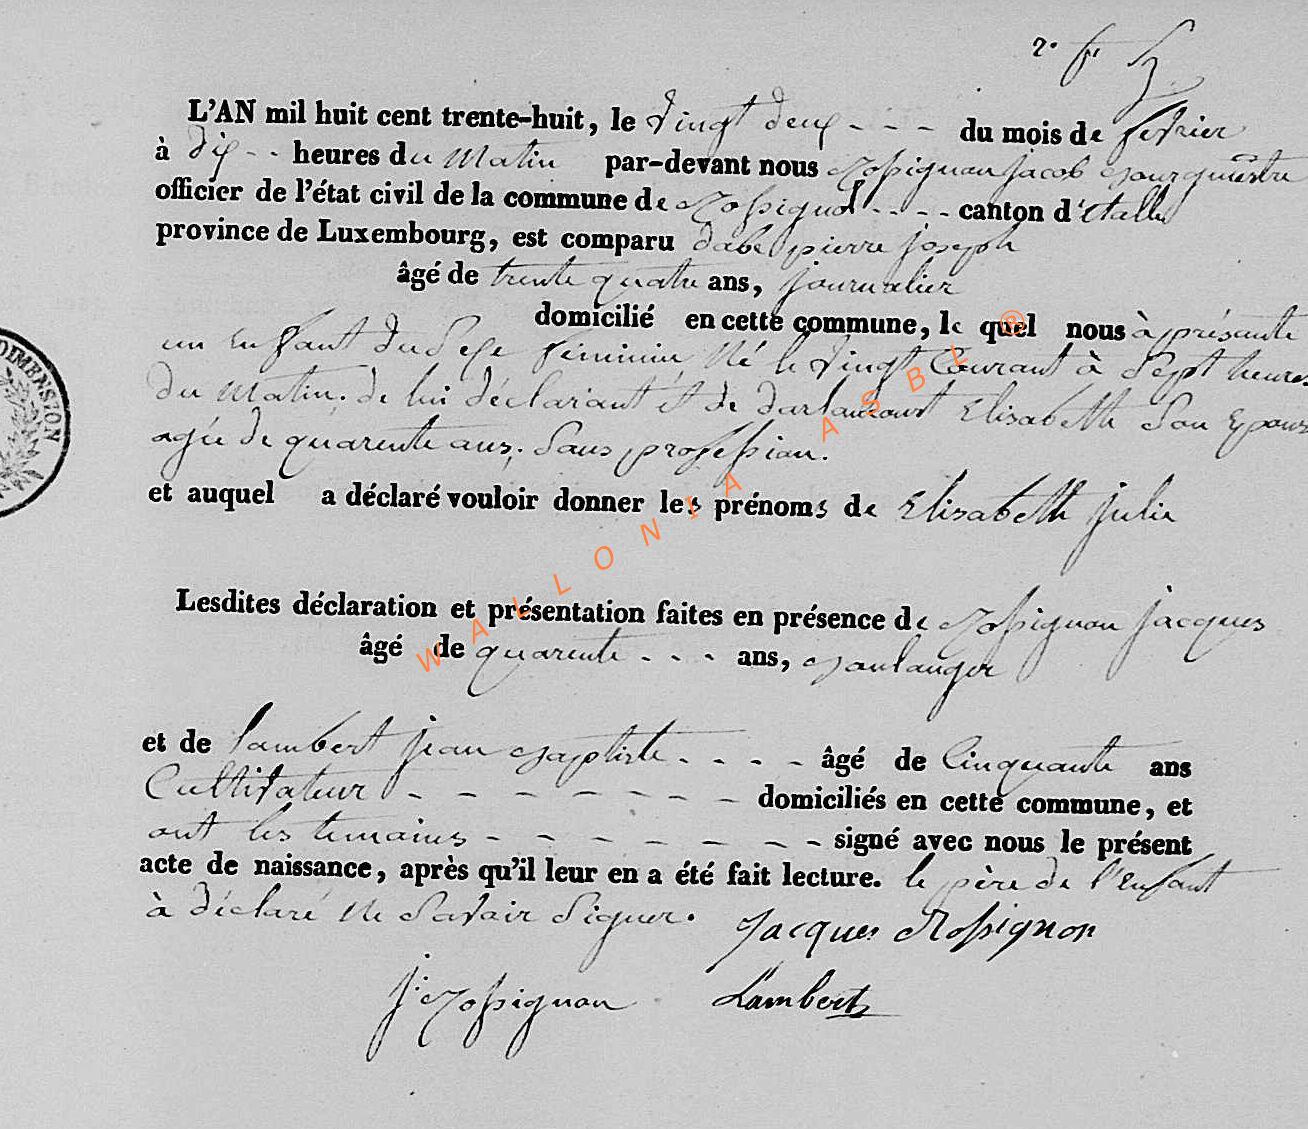 2. f
L'AN mil huit cent trente-huit, le vingt deux - - - du mois de fevrier
à dix - - heures du matin par-devant nous Rossignon jacob Bourgmestre
officier de l'état civil de la commune de Rossignol - - - - canton d'étalle
province de Luxembourg, est comparu dabe pierre joseph
âgé de trente quatre ans, journalier
domicilié en cette commune, le quel nous à présente
un Enfant du Sexe féminin, Né le vingt Courant à Sept heures
du matin. de lui déclarant et de darlancourt Elisabeth Son Epouse
agée de quarente ans, Sans profession.
et auquel a déclaré vouloir donner les prénoms de Elisabeth julie
Lesdites déclaration et présentation faites en présence de Rossignon jacques
âgé de quarente - - - ans, Boulanger
et de lambert jean Baptiste - - - - âgé de Cinquante ans
Cultivateur - - - - - - - - domiciliés en cette commune, et
ont les temoins - - - - - - - - signé avec nous le présent
acte de naissance, après qu'il leur en a été fait lecture. le père de l'Enfant
à déclaré Ne Savoir Signer. Jacques Rossignon
j. Rossignon Lambert
DIMENSION
WALLONIA ASBL ®